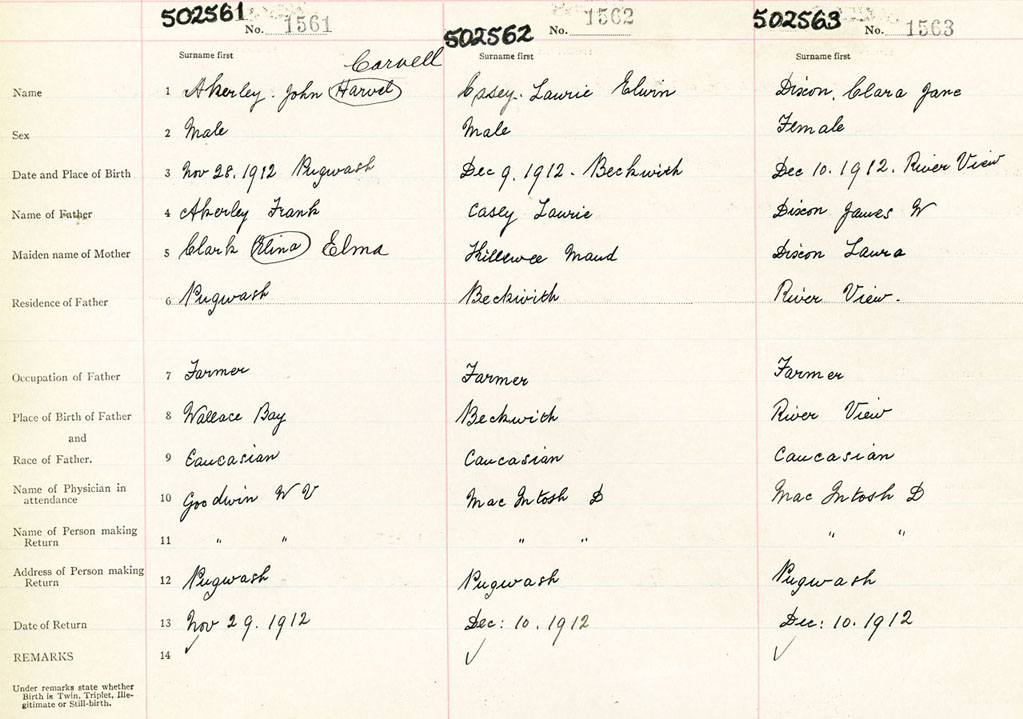 502561 No. 1561 502562 No. 1562 502563 No. 1563
Surname first Surname first Surname first
Carvell
Name 1 Akerley. John Harvel Casey. Laurie Elwin Dixon, Clara Jane
Sex 2 Male Male Female
Date and Place of Birth 3 Nov 28. 1912 Pugwash Dec 9. 1912 - Beckwith Dec 10. 1912. River View
Name of Father 4 Akerley Frank Casey Laurie Dixon James W
Maiden name of Mother 5 Clark Elina Elma Maud Dixon Laura
Residence of Father 6 Pugwash Beckwith River View.
Occupation of Father 7 Farmer Farmer Farmer
Place of Birth of Father 8 Wallace Bay Beckwith River View
and
Race of Father. 9 Caucasian Caucasian Caucasian
Name of Physician in
attendance 10 Goodwin W V Mac Intosh D Mac Intosh D
Name of Person making
Return 11 " " " " " "
Address of Person making
Return 12 Pugwash Pugwash Pugwash
Date of Return 13 Nov 29. 1912 Dec: 10. 1912 Dec: 10. 1912
REMARKS 14 ✓ ✓ ✓
Under remarks state whether
Birth is Twin, Triplet, Ille-
gitimate or Still-birth.